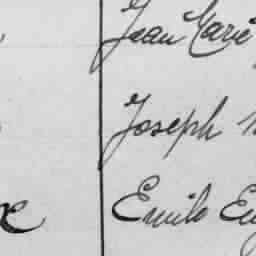 Jean Marie
Joseph
Emile Eug